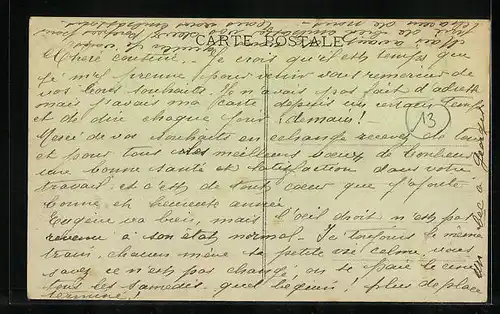 CARTE POSTALE
Chère cousine. Je crois qu'il est temps que
je m'y prenne pour venir vous remercier de
vos bons souhaits. Je n'avais pas fait d'adresse
mais j'avais ma carte depuis un certain temps
et de dire chaque jour : demain !
Merci de vos souhaits en échange recevez de tous
et pour tous nos meilleurs vœux de bonheur
une bonne santé et satisfaction dans votre
travail et c'est de tout cœur que j'ajoute
bonne et heureuse année.
Eugène va bien, mais l'œil droit n'est pas
revenu à son état normal. Ici toujours le même
train, chacun mène sa petite vie calme, vous
savez ce n'est pas changé, on se paie le ciné
tous les samedis. quel béguin ! plus de place
terminé !
13
un bec à Georges